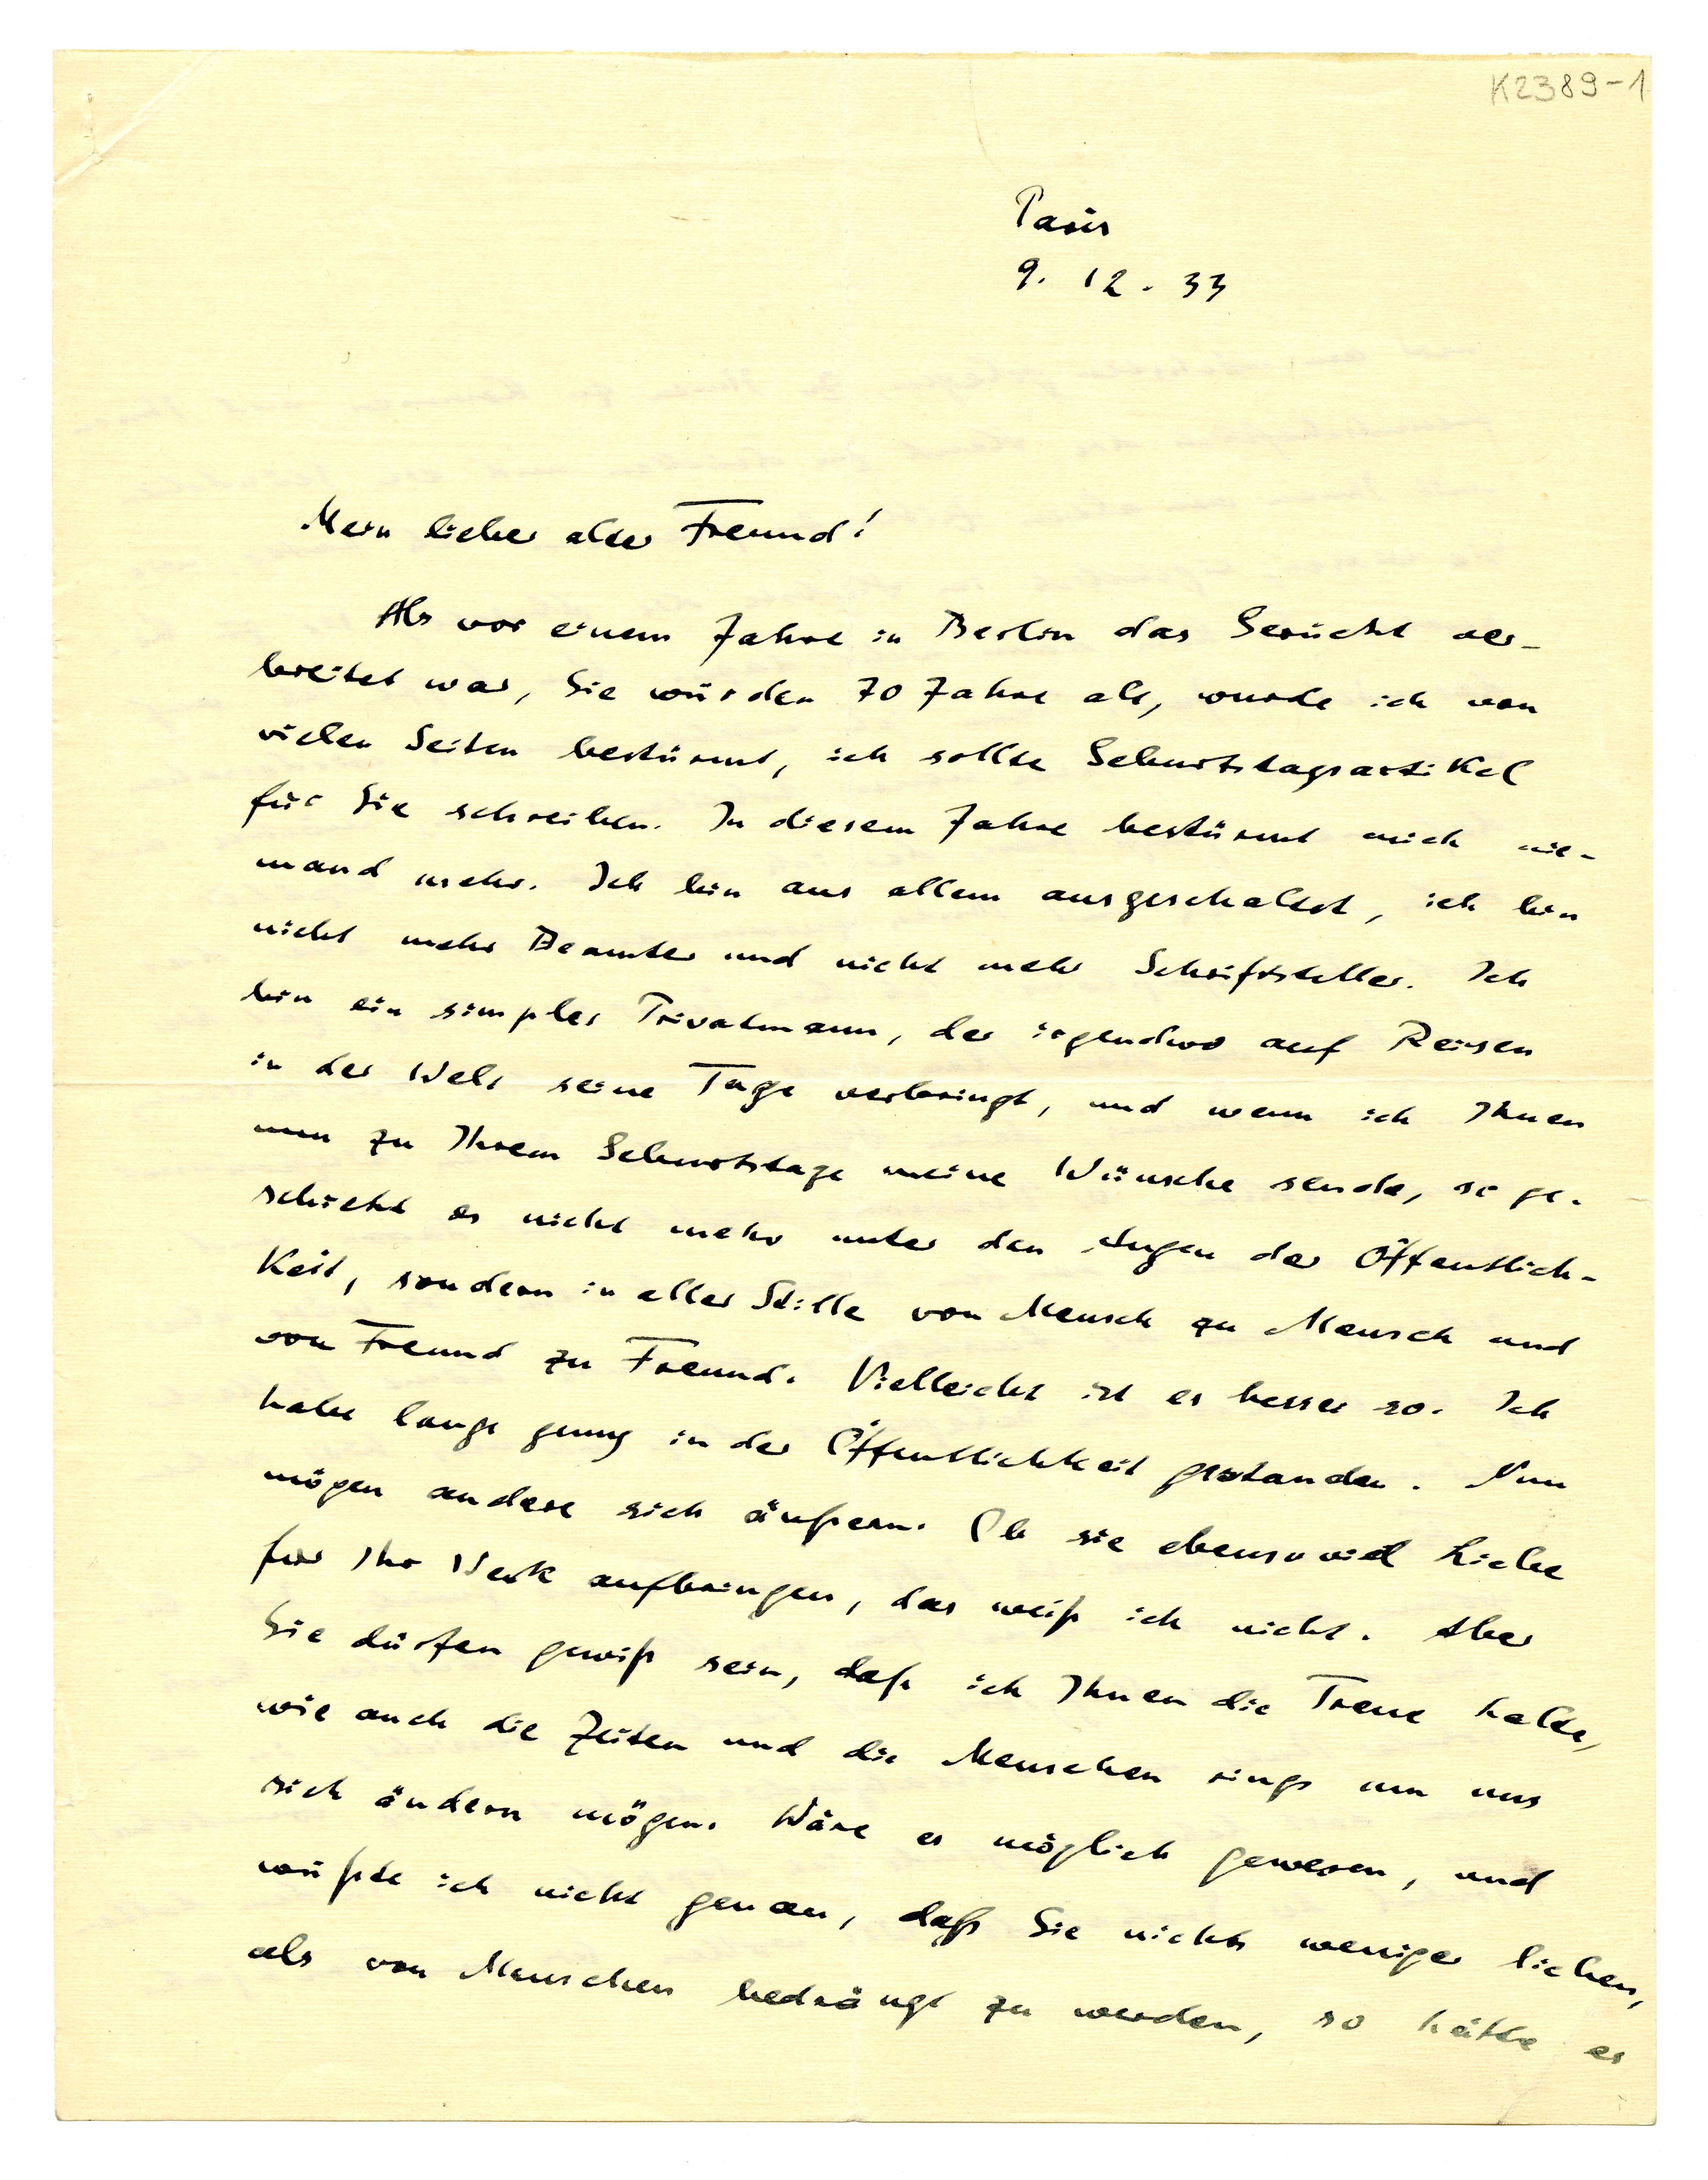 K2389-1
Paris
9. 12. 33
Mein lieber alter Freund!
Als vor einem Jahre in Berlin das Gerücht ver-
breitet war, Sie würden 70 Jahre alt, wurde ich von
vielen Seiten bestürmt, ich sollte Geburtstagsartikel
für Sie schreiben. In diesem Jahre bestürmt mich nie-
mand mehr. Ich bin aus allem ausgeschaltet, ich bin
nicht mehr Beamter und nicht mehr Schriftsteller. Ich
bin ein simpler Privatmann, der irgendwo auf Reisen
in der Welt seine Tage verbringt, und wenn ich Ihnen
nun zu Ihrem Geburtstage meine Wünsche sende, so ge-
schieht es nicht mehr unter den Augen der Öffentlich-
keit, sondern in aller Stille von Mensch zu Mensch und
von Freund zu Freund. Vielleicht ist es besser so. Ich
habe lange genug in der Öffentlichkeit gestanden. Nun
mögen andere sich äußern. Ob sie ebensoviel Liebe
für Ihr Werk aufbringen, das weiß ich nicht. Aber
Sie dürfen gewiß sein, daß ich Ihnen die Treue halte,
wie auch die Zeiten und die Menschen rings um uns
sich ändern mögen. Wäre es möglich gewesen, und
wüßte ich nicht genau, daß Sie nichts weniger lieben,
als von Menschen bedrängt zu werden, so hätte es